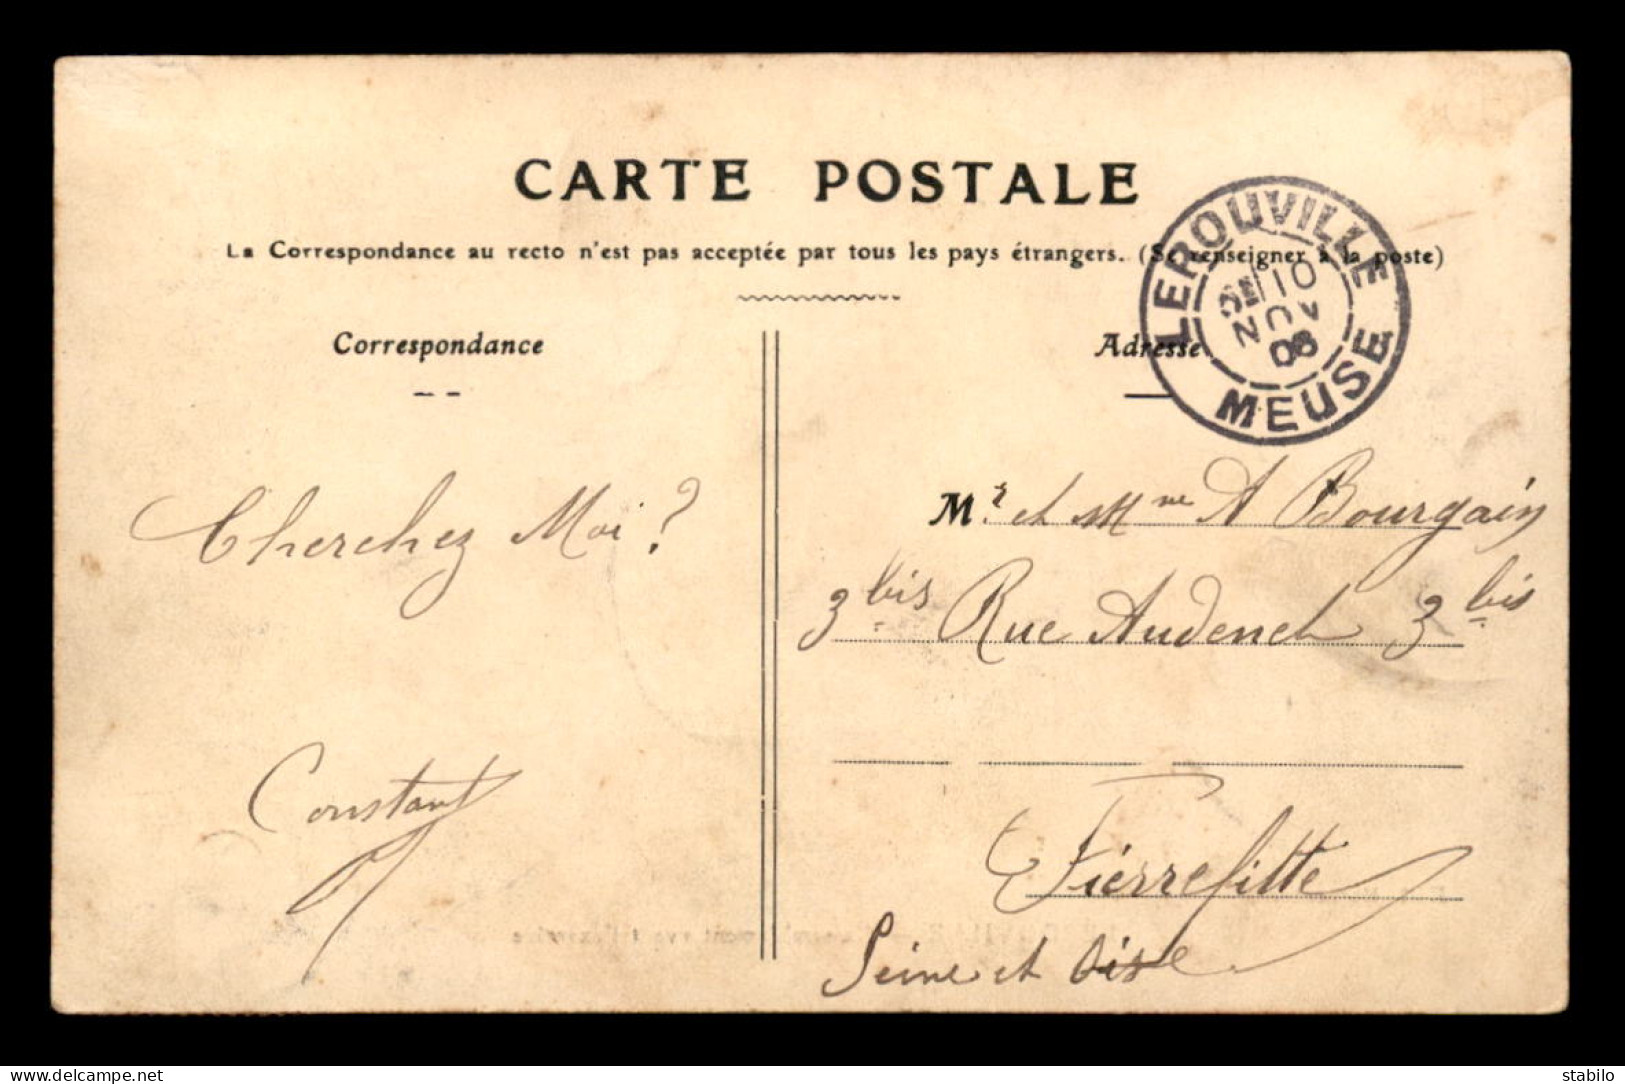 CARTE POSTALE
La Correspondance au recto n'est pas acceptée par tous les pays étrangers. (Se renseigner à la poste)
Correspondance
Adresse
LEROUVILLE
10
NOV
08
MEUSE
Cherchez Moi ?
Constant
Mr. et Mme A Bourgain
3 bis Rue Audenet 3 bis
Pierrefitte
Seine et Oise
delcampe.net
stabilo